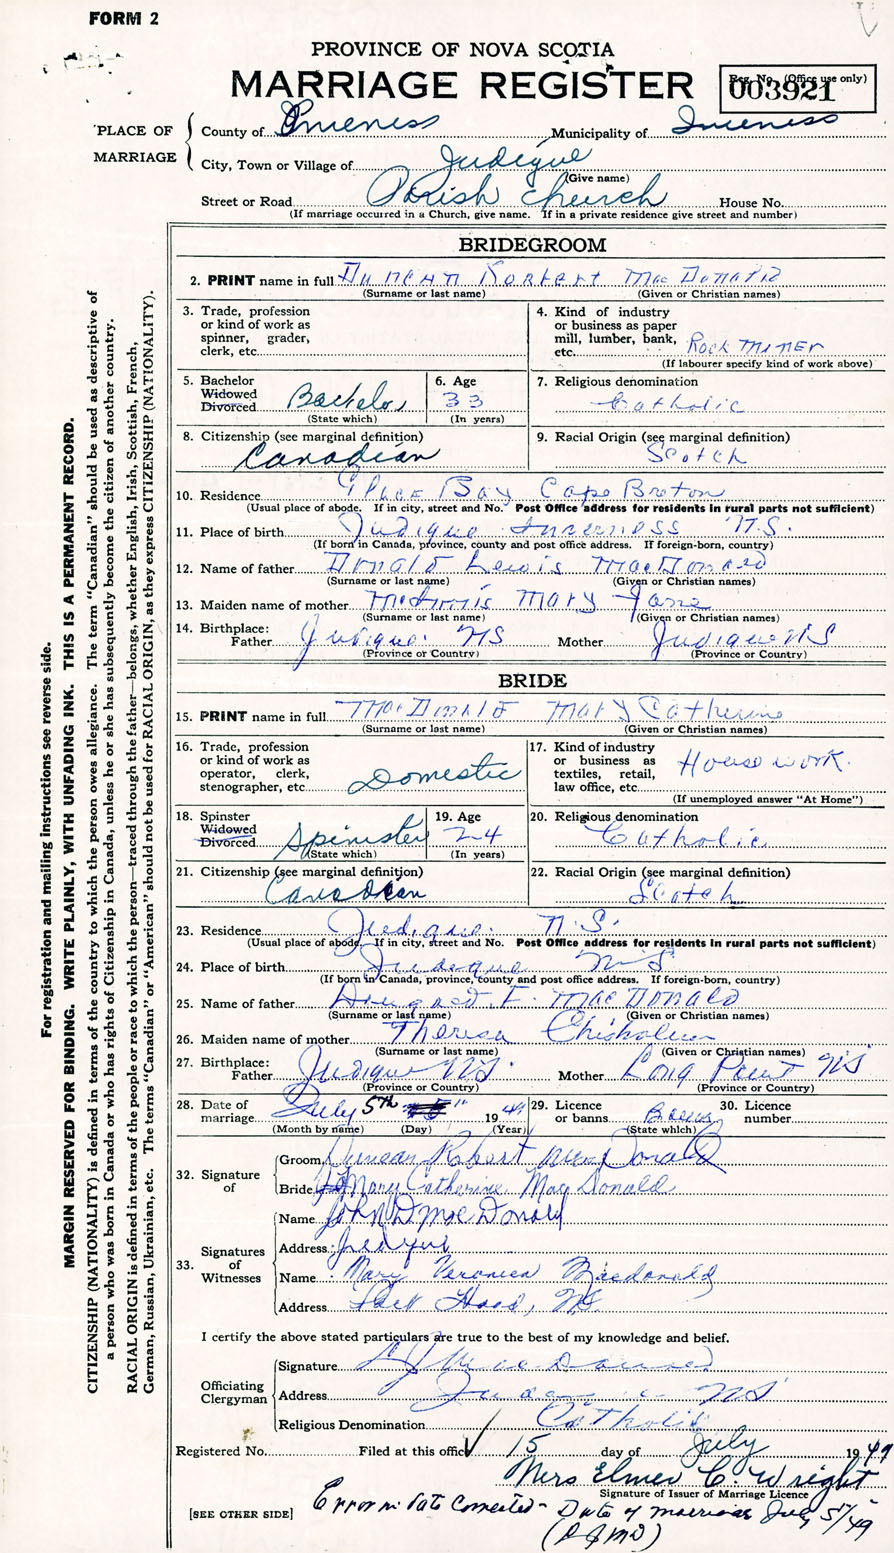 FORM 2
PROVINCE OF NOVA SCOTIA
MARRIAGE REGISTER
Reg. No. (Office use only)
003921
PLACE OF MARRIAGE
County of Inverness Municipality of Inverness
City, Town or Village of Judique
(Give name)
Street or Road Parish Church House No.
(If marriage occurred in a Church, give name. If in a private residence give street and number)
BRIDEGROOM
2. PRINT name in full Duncan Robert MacDonald
(Surname or last name) (Given or Christian names)
3. Trade, profession or kind of work as spinner, grader, clerk, etc.
4. Kind of industry or business as paper mill, lumber, bank, etc. Rock Miner
(If labourer specify kind of work above)
5. Bachelor Widowed Divorced Bachelor
(State which)
6. Age 33
(In years)
7. Religious denomination
Catholic
8. Citizenship (see marginal definition)
Canadian
9. Racial Origin (see marginal definition)
Scotch
10. Residence Glace Bay Cape Breton
(Usual place of abode. If in city, street and No. Post Office address for residents in rural parts not sufficient)
11. Place of birth Judique Inverness N.S.
(If born in Canada, province, county and post office address. If foreign-born, country)
12. Name of father Donald Lewis MacDonald
(Surname or last name) (Given or Christian names)
13. Maiden name of mother McInnis Mary Jane
(Surname or last name) (Given or Christian names)
14. Birthplace: Father Judique NS Mother Judique NS
(Province or Country) (Province or Country)
BRIDE
15. PRINT name in full MacDonald Mary Catherine
(Surname or last name) (Given or Christian names)
16. Trade, profession or kind of work as operator, clerk, stenographer, etc. Domestic
17. Kind of industry or business as textiles, retail, law office, etc. House work.
(If unemployed answer "At Home")
18. Spinster Widowed Divorced Spinister
(State which)
19. Age 24
(In years)
20. Religious denomination
Catholic
21. Citizenship (see marginal definition)
Canadian
22. Racial Origin (see marginal definition)
Scotch
23. Residence Judique N.S.
(Usual place of abode. If in city, street and No. Post Office address for residents in rural parts not sufficient)
24. Place of birth Judique N S
(If born in Canada, province, county and post office address. If foreign-born, country)
25. Name of father F. MacDonald
(Surname or last name) (Given or Christian names)
26. Maiden name of mother Theresa Chisholm
(Surname or last name) (Given or Christian names)
27. Birthplace: Father Judique NS. Mother Long Point NS
(Province or Country) (Province or Country)
28. Date of marriage July 5th 1949
(Month by name) (Day) (Year)
29. Licence or banns Banns
(State which)
30. Licence number
32. Signature of
Groom Duncan Robert MacDonald
Bride Mary Catherine MacDonald
33. Signatures of Witnesses
Name John D MacDonald
Address Judique
Name Mary Veronica Macdonald
Address Port Hood, NS
I certify the above stated particulars are true to the best of my knowledge and belief.
Officiating Clergyman
Signature
Address Judique NS
Religious Denomination Catholic
Registered No. Filed at this office 15 day of July 1949
Mrs Elmer C. Wright
Signature of Issuer of Marriage Licence
[SEE OTHER SIDE] Error in date corrected - Date of marriage July 5/49
For registration and mailing instructions see reverse side.
MARGIN RESERVED FOR BINDING. WRITE PLAINLY, WITH UNFADING INK. THIS IS A PERMANENT RECORD.
CITIZENSHIP (NATIONALITY) is defined in terms of the country to which the person owes allegiance. The term "Canadian" should be used as descriptive of
a person who was born in Canada or who has rights of Citizenship in Canada, unless he or she has subsequently become the citizen of another country.
RACIAL ORIGIN is defined in terms of the people or race to which the person—traced through the father—belongs, whether English, Irish, Scottish, French,
German, Russian, Ukrainian, etc. The terms "Canadian" or "American" should not be used for RACIAL ORIGIN, as they express CITIZENSHIP (NATIONALITY).